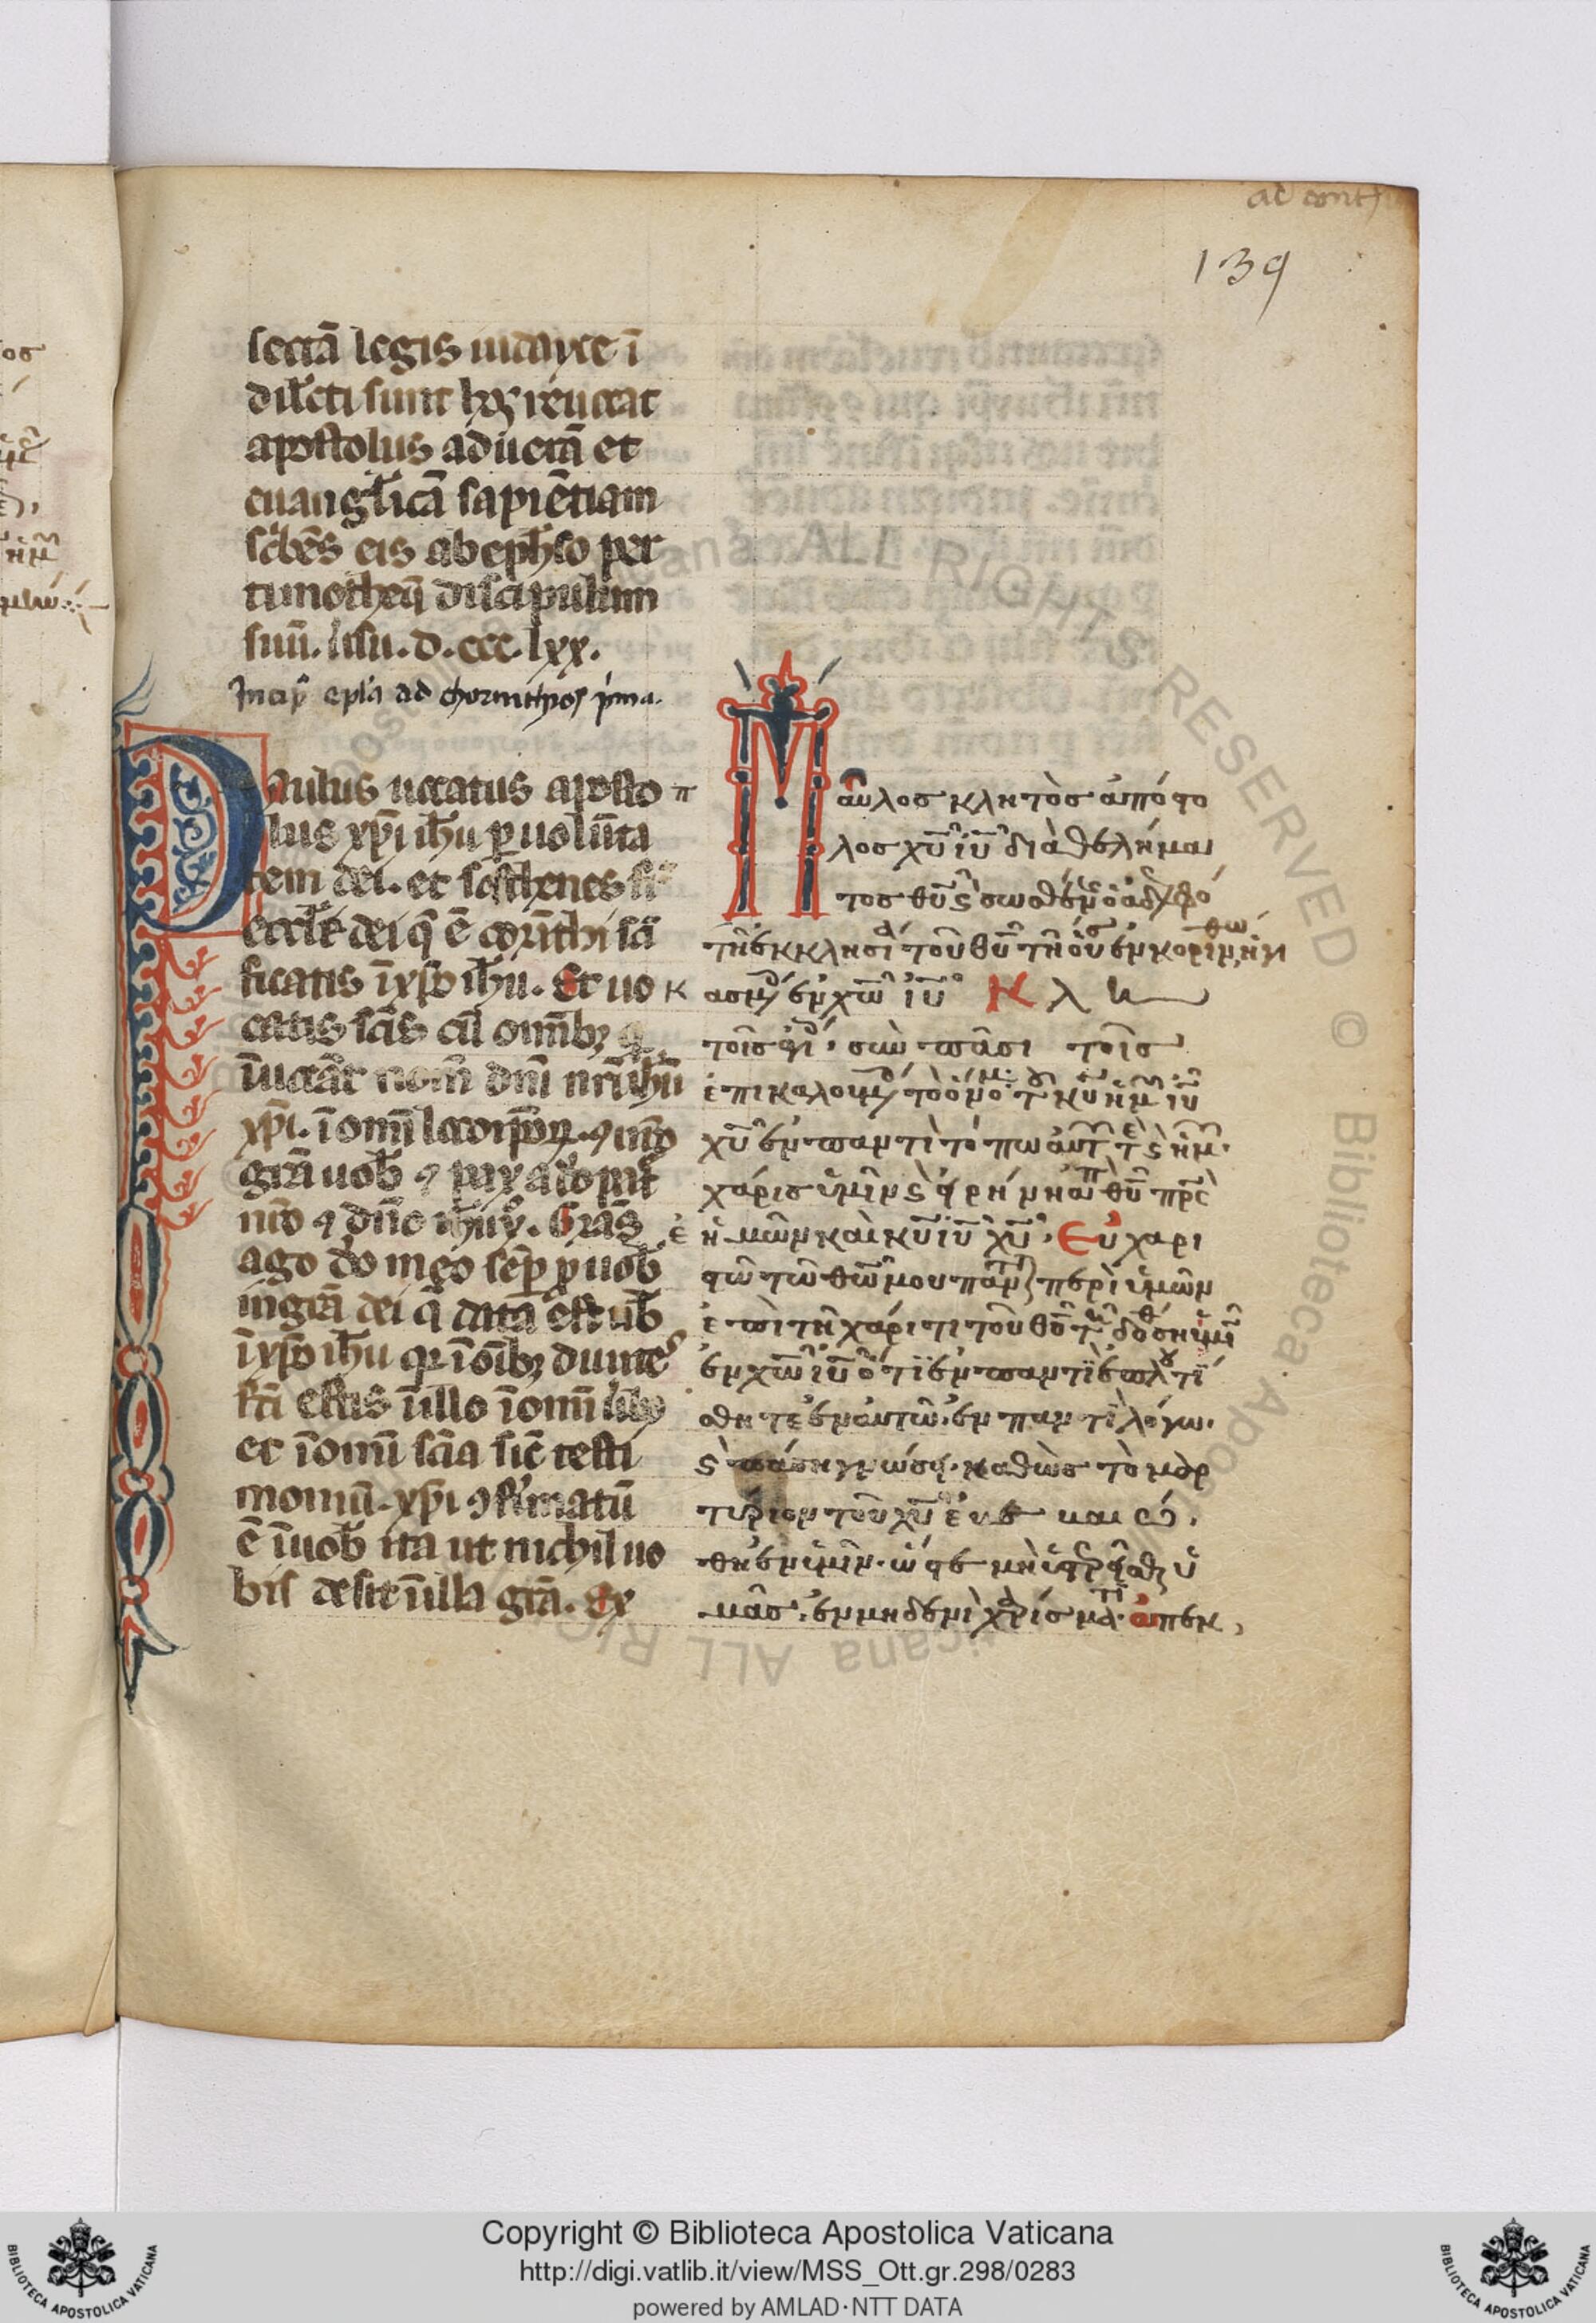 ad corinth
139
sectā legis iudayce ī
ducti sunt hos reuocat
apostolus ad uerā et
euangl̄icā sapiētiam
sc̓bēs eis ab eph̄so per
timotheū discipulum
suū. d. ccc. lxx.
Incip̄ epl̄a ad chorinthyos p̓ma.
Paulus uocatus aposto
lus xp̄i ih̄u p uolūta
tem dei. et sosthenes
eccl̄e dei q̄ ē corīthi sā
ficatis ī xp̄o ih̄u. Et uo
catis sc̄is cū omībꝫ q
īuocāt nom̄ dn̄i nr̄i ih̄u
xp̄i. ī omī loco ip̄oꝝ.
grā uob̄ ⁊ pax a do pat̄
nr̄o ⁊ dn̄o ih̄u x̄. Gr̄as
ago do meo sēp p uob̄
in grā dei q̄ data est uob̄
ī xp̄o ih̄u q ī oīb; diuite
fc̄i estis ī illo ī omī
et ī omī sc̄ia sic̄ testi
moniū. xp̄i ꝯfirmatū
ē ī uob̄ ita ut nichil uo
bis desit ī ulla grā. Ex
π
αῦλος κλητὸς ἀπόστο
λος χῡ ἰῡ διὰ θελήμα
τος θῡ ϗ σωσθέν ὁ ἀδελφό
τῆ ἐκκλησία τοῦ θῡ τῆ οὔσ ἐν κορίνθω ἡγι
κ
ασμ ἐν χω̄ ἰῡ Κλη
τοῖς ἁγί. σὺν πᾶσι τοῖς
ἐπικαλουμ τὸ ὄνο τ κῡ ἡμ ἰῡ
χῡ ἐν παντὶ τόπω αὐτ τε ϗ ἡμ.
χάρις ὑμῖν ϗ εἰρήνη ἀπὸ θῡ πρ̄ς
ἡμῶν καὶ κῡ ἰῡ χῡ. Εὐχαρι
στῶ τῶ θω̄ μου πάντ περὶ ὑμῶν
ἐπὶ τῆ χάριτι τοῦ θῡ τ δοθείση ὑμῖ
ἐν χω̄ ἰῡ ὅτι ἐν παντὶ ἐπλουτί
σθητε ἐν αὐτῶ. ἐν παντὶ λόγω.
ϗ πάση γνώσει. καθὼς τὸ μαρ
τύριον τοῦ χῡ ἐβεβαιώ
θη ἐν ὑμῖν. ὥστε μὴ ὑστερεῖσθαι ὑ
μᾶς. ἐν μηδενὶ χαρίσματι. ἀπεκ
Copyright © Biblioteca Apostolica Vaticana
http://digi.vatlib.it/view/MSS_Ott.gr.298/0283
powered by AMLAD·NTT DATA
BIBLIOTECA APOSTOLICA VATICANA
BIBLIOTECA APOSTOLICA VATICANA